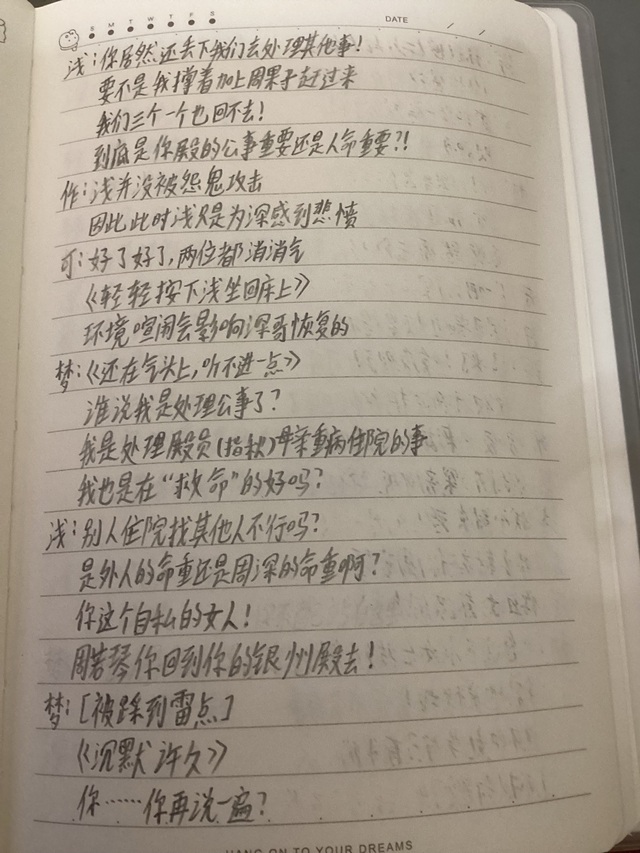 S M T W T F S
DATE / /
浅:你居然还丢下我们去处理其他事!
要不是我撑着加上周果子赶过来
我们三个一个也回不去!
到底是你殿的公事重要还是人命重要?!
作:浅并没被怨鬼攻击
因此此时浅只是为深感到悲愤
可:好了好了,两位都消消气
《轻轻按下浅坐回床上》
环境喧闹会影响深哥恢复的
梦:《还在气头上,听不进一点》
谁说我是处理公事了?
我是处理殿员(指秋)母亲重病住院的事
我也是在“救命”的好吗?
浅:别人住院找其他人不行吗?
是外人的命重还是周深的命重啊?
你这个自私的女人!
周若琴你回到你的银州殿去!
梦:[被踩到雷点]
《沉默许久》
你……你再说一遍?
HANG ON TO YOUR DREAMS